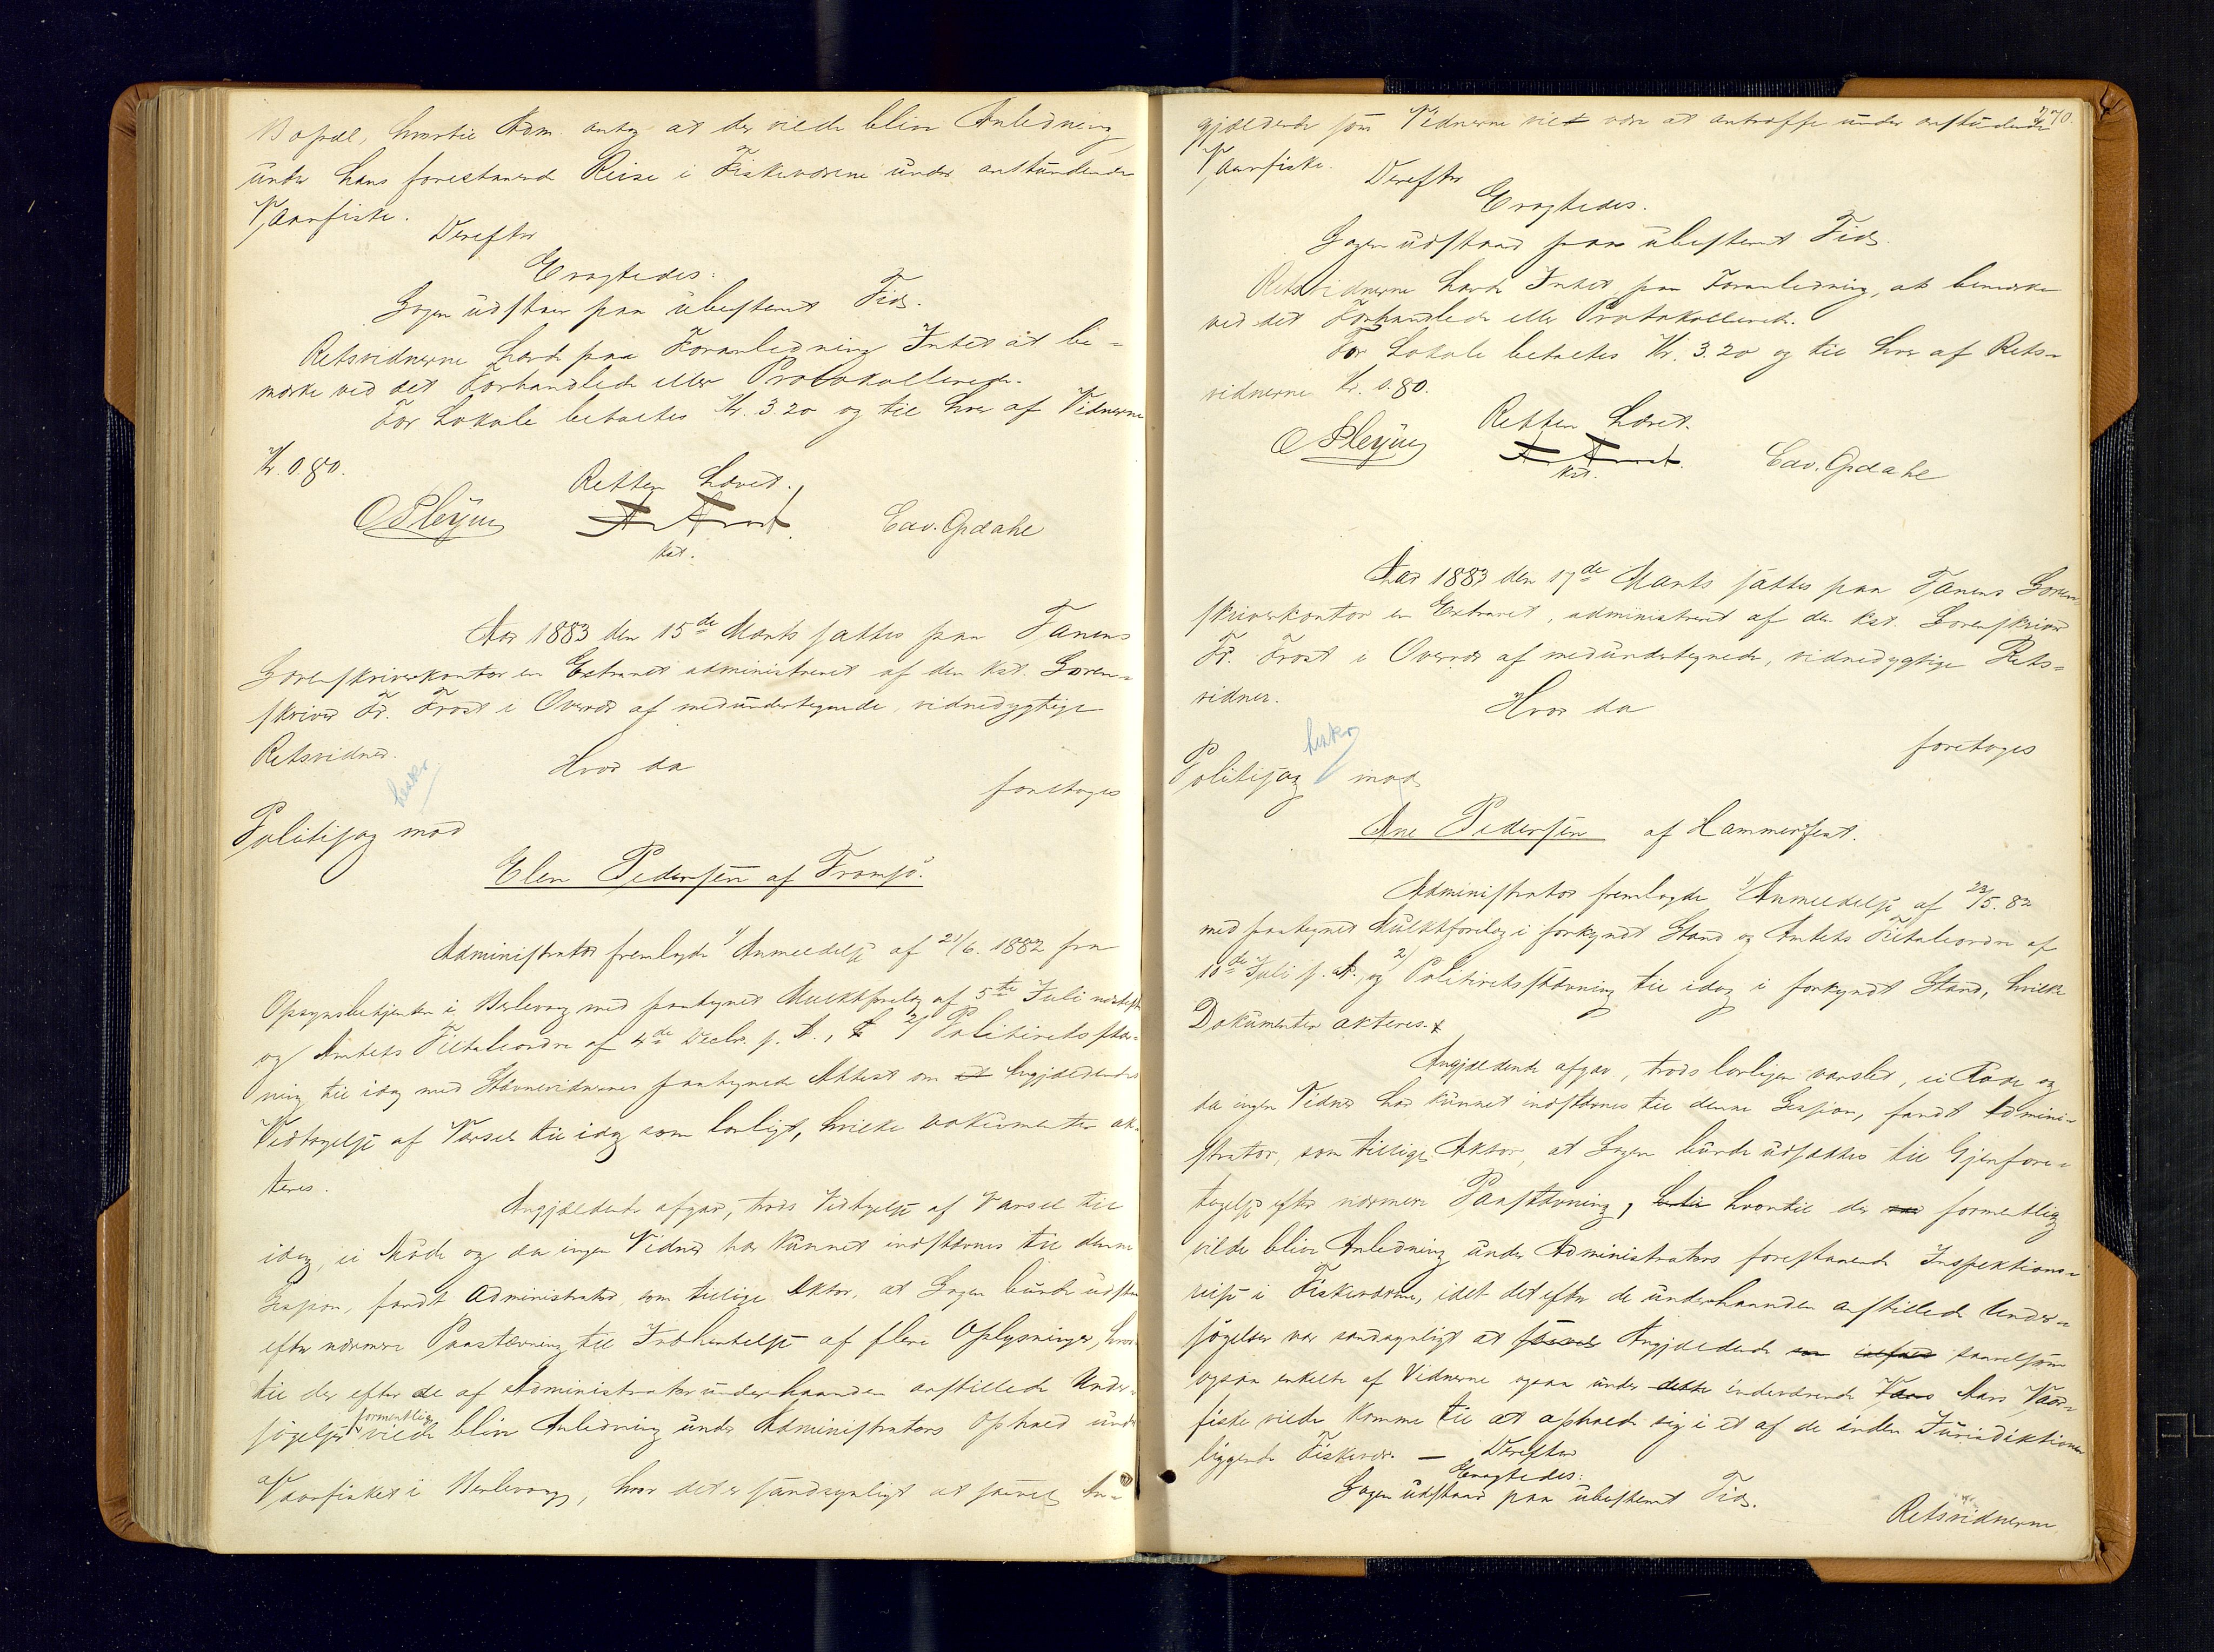 Bopæl, hvortil Adm. antog at der vilde blive Anledning
under hans forestaaende Reise i Fiskeværene under anstundende
Vaarfiske.
Derefter
Eragtedes:
Sagen udstaar paa ubestemt Tid.
Retsvidnerne havde paa Foranledning Intet at be-
mærke ved det Forhandlede eller Protokollerede.
For Lokale betaltes Kr. 3.20 og til hver af Vidnerne
Kr. 0.80.
Retten hævet.
Fr. Frost.
Edv. Opdahl
kst.
Aar 1883 den 15de Marts sattes paa Tanens
Sorenskriverkontor en Extraret administreret af den kst. Soren-
skriver Fr. Frost i Overvær af medundertegnede, vidnedygtige
Retsvidner.
Hvor da
foretoges
Politisag mod
Elen Pedersen af Tromsö.
Administrator fremlagde 1/ Anmeldelse af 21/6. 1882 fra
Opsynsbetjenten i Berlevaag med paategnet Mulktforelæg af 5te Juli næstefter
og Amtets Tiltaleordre af 4de Decbr. f. A., 2/ Politiretsstæv-
ning til idag med Stævnevidnernes paategnede Attest om Angjældendes
Vedtagelse af Varsel til idag som lovligt, hvilke Dokumenter ak-
teres.
Angjældende afgav, trods Vedtagelse af Varsel til
idag, ei Möde og da ingen Vidner har kunnet indstævnes til denne
Session, fandt Administrator, som tillige Aktor, at Sagen burde udstaa
efter nærmere Paastævning til Indhentelse af flere Oplysninger, hvor-
til der efter de af Administrator underhaanden anstillede Under-
sögelser formentlig vilde blive Anledning under Administrators Ophold under
Vaarfisket i Berlevaag, hvor det er sandsynligt at saavel An-
270.
gjældende som Vidnerne vil være at antræffe under anstundende
Vaarfiske.
Derefter
Eragtedes.
Sagen udstaar paa ubestemt Tid.
Retsvidnerne havde Intet, paa Foranledning, at bemærke
ved det Forhandlede eller Protokollerede.
For Lokale betaltes Kr. 3.20 og til hver af Rets-
vidnerne Kr. 0.80.
Retten hævet.
Fr. Frost.
Edv. Opdahl
kst.
Aar 1883 den 17de Marts sattes paa Tanens Soren-
skriverkontor en Extraret, administreret af den kst. Sorenskriver
Fr. Frost i Overvær af medundertegnede, vidnedygtige Rets-
vidner.
Hvor da
foretoges
Politisag mod
Ane Pedersen af Hammerfest.
Administrator fremlagde 1/ Anmeldelse af 23/5. 82
med paategnet Mulktforelæg i forkyndt Stand og Amtets Tiltaleordre af
10de Juli f. A. og 2/ Politiretsstævning til idag i forkyndt Stand, hvilke
Dokumenter akteres.
Angjældende afgav, trods lovligen varslet, ei Möde og
da ingen Vidner har kunnet indstævnes til denne Session, fandt Admini-
strator, som tillige Aktor, at Sagen burde udsættes til Gjenfore-
tagelse efter nærmere Paastævning, hvortil der formentlig
vilde blive Anledning under Administrators forestaaende Inspektions-
reise i Fiskeværene, idet det efter de underhaanden anstillede Under-
sögelser var sandsynligt at Angjældende saavelsom
ogsaa enkelte af Vidnerne ogsaa under indeværende Aars Vaar-
fiske vilde komme til at opholde sig i et af de inden Jurisdiktionen
liggende Fiskevær. — Derefter
Eragtedes:
Sagen udstaar paa ubestemt Tid.
Retsvidnerne